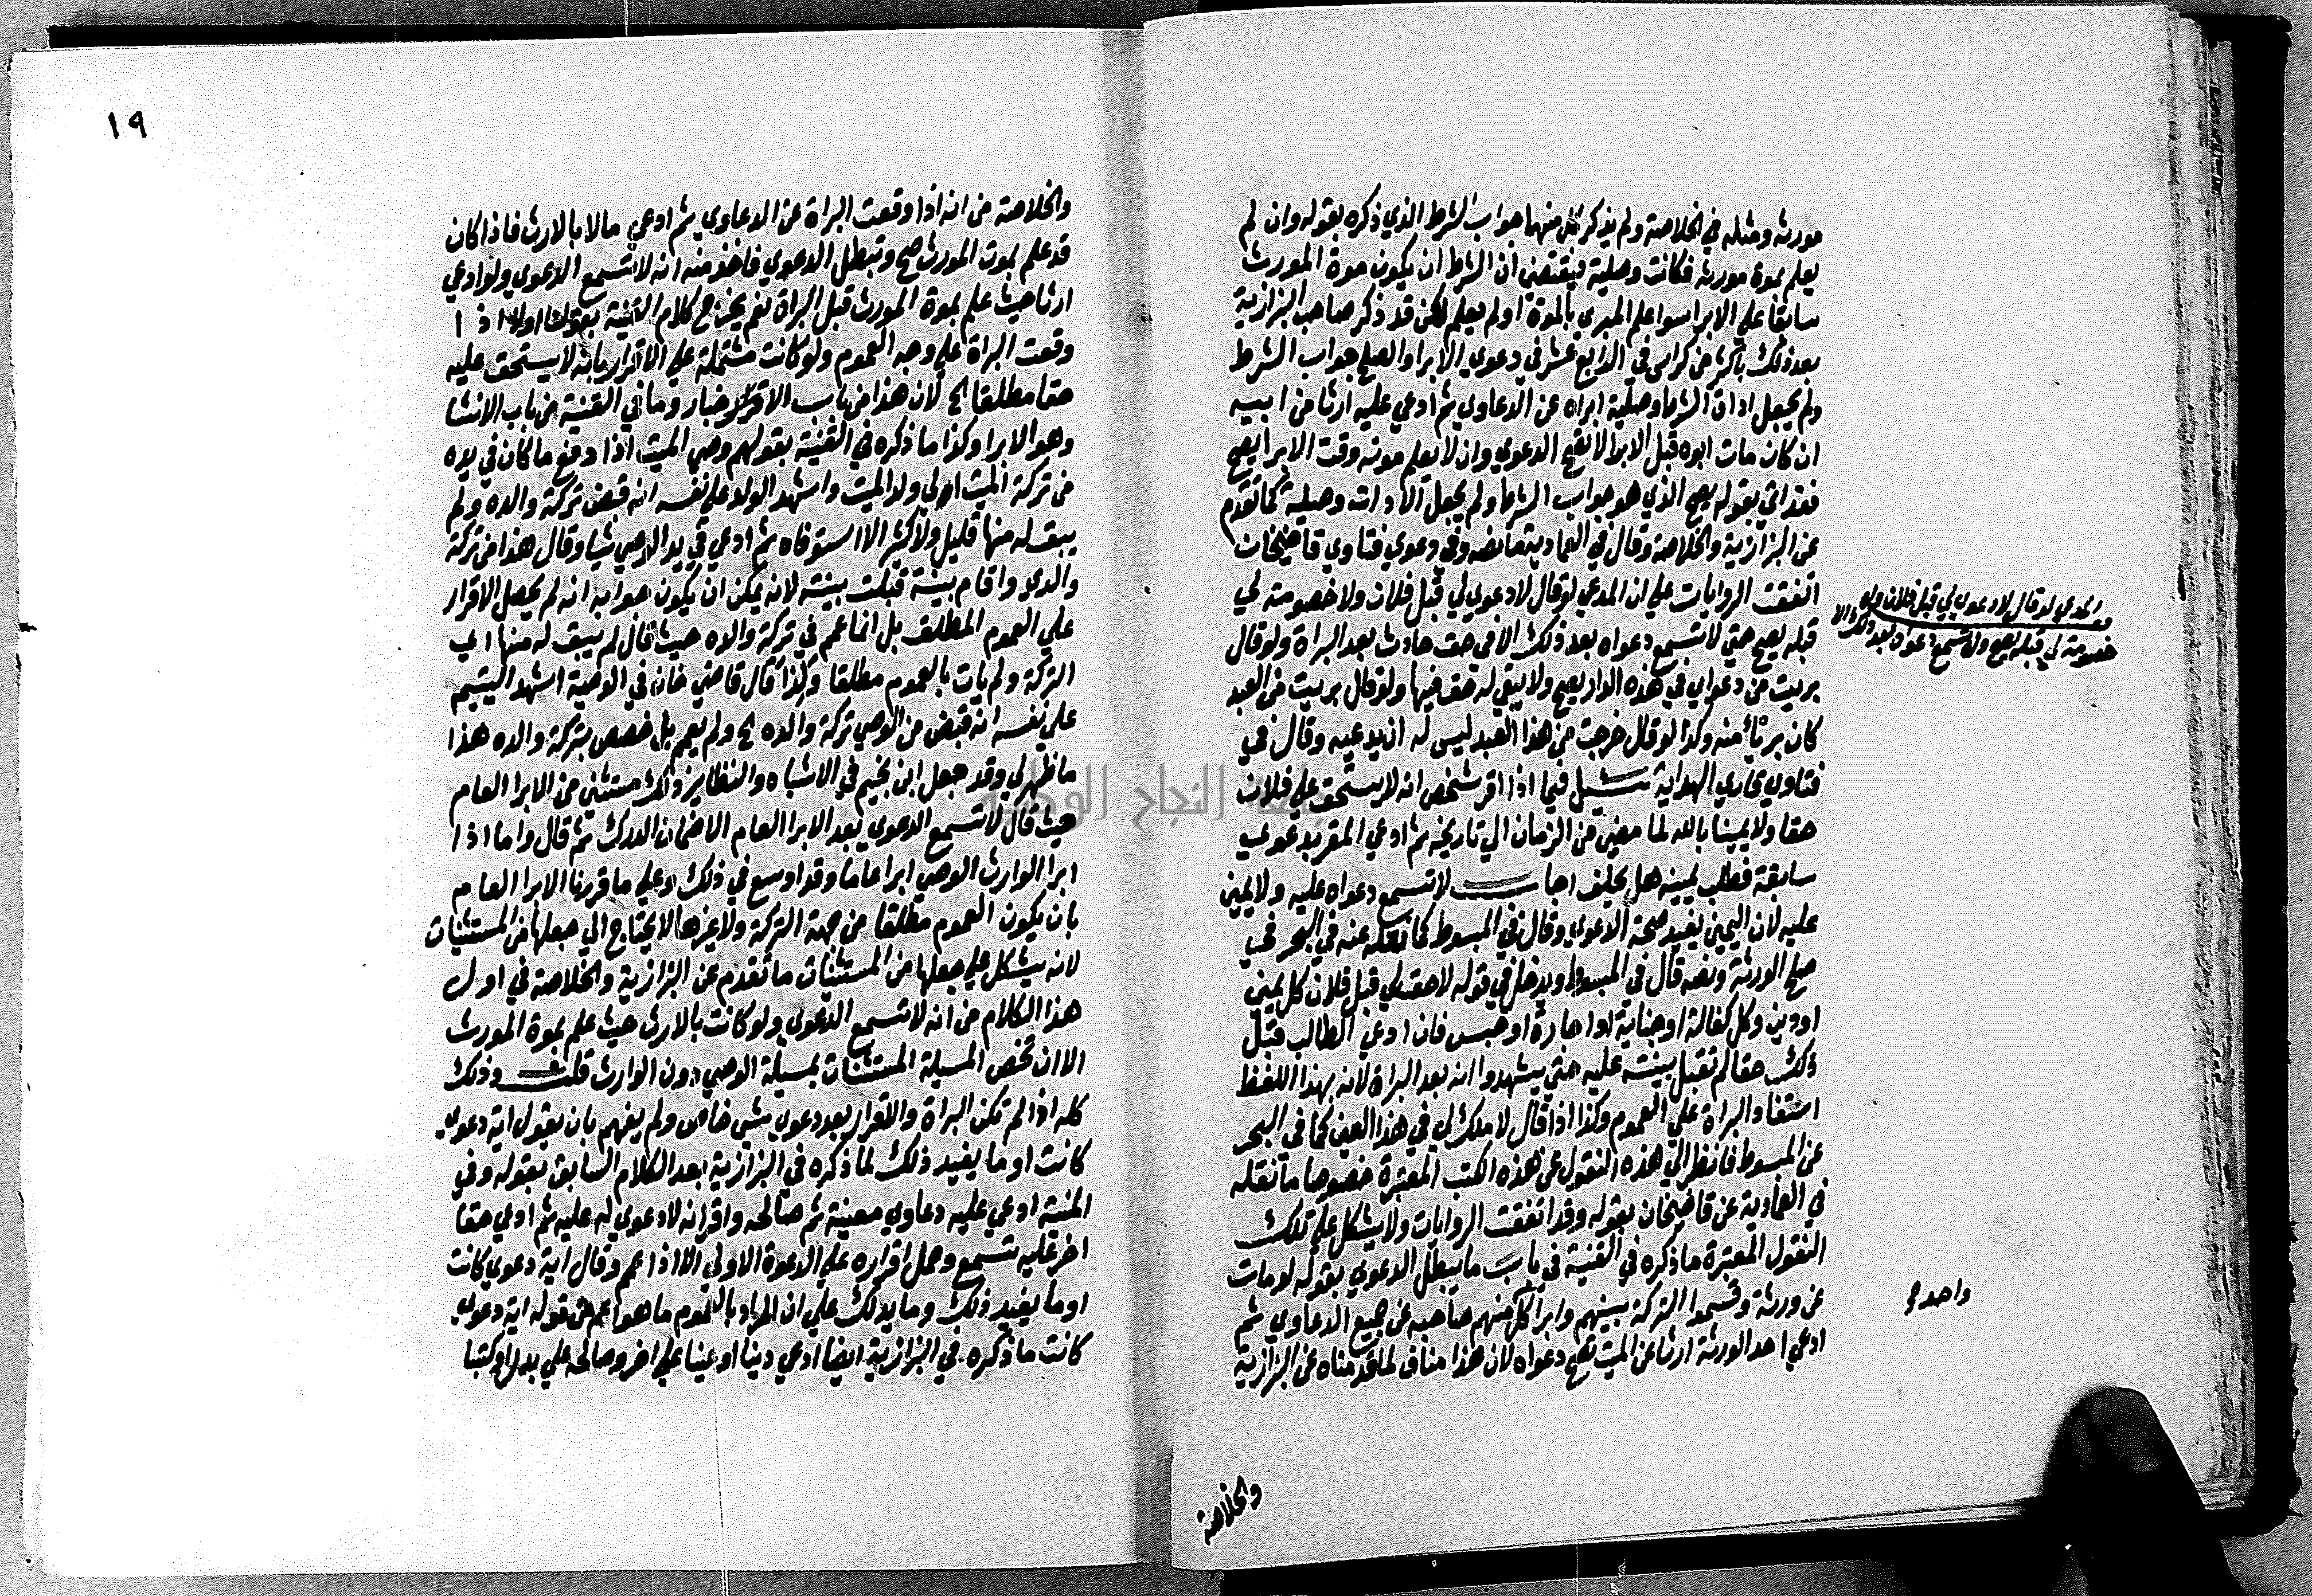 مورثه ومثله في الخلاصة ولم يذكر كل منهما جواب الشرط الذي ذكره بقوله وان لم
يعلم بموة مورثه فكانت وصلية فيقتضي ان الشرط ان يكون موة المورث
سابقا علي الابرا سوا علم المبري بالموة او لم يعلم لكن قد ذكر صاحب البزازية
بعد ذلك باكثر من كراس في الرابع عشر في دعوي الابرا والصلح جواب الشرط
ولم يجعل اداة الشرط وصلية ابراه عن الدعاوي ثم ادعي عليه ارثا من ابيه
ان كان مات ابوه قبل الابرا لا تصح الدعوي وان لا يعلم موته وقت الابرا يصح
فقد اتي بقوله يصح الذي هو جواب الشرط ولم يجعل الاداة وصلية كما تقدم
عن البزازية والخلاصة وقال في العمادية ما نصه وفي دعوي فتاوي قاضيخان
اتفقت الروايات علي ان المدعي لو قال لا دعوي لي قبل فلان ولا خصومة لي
قبله يصح حتي لا تسمع دعواه بعد ذلك الا في حق حادث بعد البراة ولو قال
بريت من دعواي في هذه الدار يصح ولا يبقي له حق فيها ولو قال بريت من العبد
كان بريئا منه وكذا لو قال خرجت من هذا العبد ليس له ان يدعيه وقال في
فتاوي قاري الهداية سئل فيما اذا اقر شخص انه لا يستحق علي فلان
حقا ولا يمينا بالله لما مضي من الزمان الي تاريخه ثم ادعي المقر بدعوي
سابقة فطلب يمينه هل يحلف اجاب لا تسمع دعواه عليه ولا يمين
عليه لان اليمين يفيد صحة الدعوي وقال في المبسوط كما نقله عنه في البحر في
صلح الورثة ونصه قال في المبسوط ويدخل في قوله لا حق لي قبل فلان كل يمين
او دين وكل كفالة او جناية او اجارة او حبس فان ادعي الطالب قبل
ذلك حقا لم تقبل بينته عليه حتي يشهدوا انه بعد البراة لانه بهذا اللفظ
استفاد البراة علي العموم وكذا اذا قال لا ملك لي في هذا العين كما في البحر
عن المبسوط فانظر الي هذه النقول عن هذه الكتب المعتبرة خصوصا ما نقله
في العمادية عن قاضيخان بقوله وقد اتفقت الروايات ولا يشكل علي تلك
النقول المعتبرة ما ذكره في القنية في باب ما يبطل الدعوي بقوله لو مات
عن ورثة وقسموا التركة بينهم وابرا كل منهم صاحبه عن جميع الدعاوي ثم
ادعي احد الورثة ارثا عن الميت تصح دعواه لان هذا مناف لما قدمناه عن البزازية
المدعي لو قال لا دعوي لي قبل فلان ولو
خصومة لي قبله يصح ولا تسمع دعواه بعد ذلك الا
واحد
والخلاصة
١٩
والخلاصة من انه اذا وقعت البراة عن الدعاوي ثم ادعي مالا بالارث فاذا كان
قد علم بموت المورث صح وتبطل الدعوي فاخذ منه انه لا تسمع الدعوي ولو ادعي
ارثا حيث علم بموة المورث قبل البراة نعم يخرج كلام القنية بقولنا اولا اذا
وقعت البراة علي وجه العموم ولو كانت مشتملة علي الاقرار بانه لا يستحق عليه
حقا مطلقا الخ لان هذا من باب الاخبار وما في القنية من باب الانشا
وهو الابرا وكذا ما ذكره في القنية بقولهم وصي الميت اذا دفع ما كان في يده
من تركة الميت الي ولد الميت واشهد الولد علي نفسه انه قبض تركة والده ولم
يبق له منها قليل ولا كثير الا استوفاه ثم ادعي في يد الوصي شيا وقال هذا من تركة
والدي واقام بينة قبلت بينته لانه يمكن ان يكون جوابه انه لم يحصل الاقرار
علي العموم المطلق بل انما عمم في تركة والده حيث قال لم يبق له منها اي
التركة ولم يات بالعموم مطلقا وكذا قال قاضي خان في الوصية اشهد اليتيم
علي نفسه انه قبض من الوصي تركة والده الخ ولم يعم بل خصص بتركة والده هذا
ما ظهر لي وقد جعل ابن نجيم في الاشباه والنظاير ذلك مستثني من الابرا العام
حيث قال لا تسمع الدعوي بعد الابرا العام الا ضمان الدرك ثم قال واما اذا
ابرا الوارث الوصي ابرا عاما وقد اوسع في ذلك وعلي ما قررنا الابرا العام
بان يكون العموم مطلقا من جهة التركة ولا غيرها لا يحتاج الي جعلها من المستثنيات
لانه يشكل علي جعلها من المستثنيات ما تقدم عن البزازية والخلاصة في اول
هذا الكلام من انه لا تسمع الدعوي ولو كانت بالارث حيث علم بموة المورث
الا ان تخص المسيلة المستثنات بمسيلة الوصي دون الوارث قلت وذلك
كله اذا لم تكن البراة والاقرار بعد دعوي بشي خاص ولم يفهم بان يقول اية دعوي
كانت او ما يفيد ذلك لما ذكره في البزازية بعد الكلام السابق بقوله وفي
المنية ادعي عليه دعاوي معينة ثم صالحه واقر انه لا دعوي له عليه ثم ادعي حقا
اخر عليه تسمع وحمل اقراره علي الدعوة الاولي الا اذا عم وقال اية دعوي كانت
او ما يفيد ذلك وما يدلك علي ان المراد بالعموم ما هو اعم من قوله اية دعوي
كانت ما ذكره في البزازية ايضا ادعي دينا او عينا علي اخر وصالحه علي بدل وكتبا